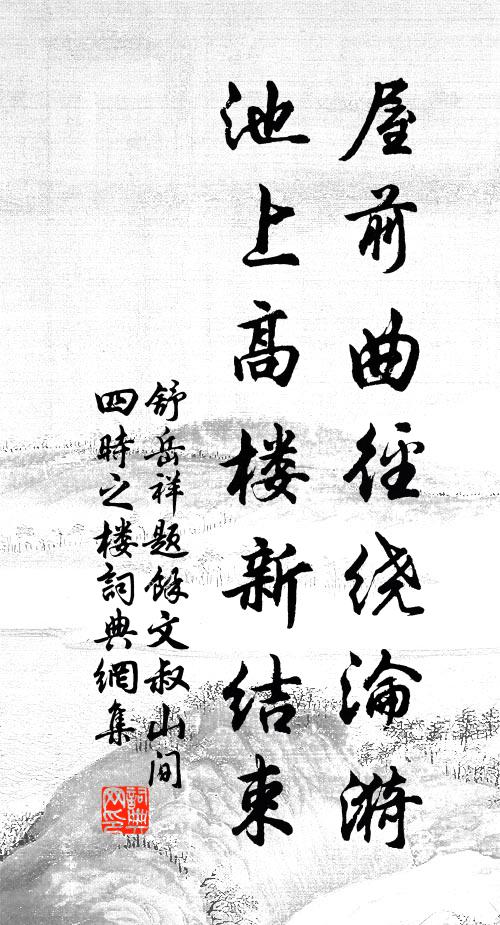 屋前曲徑绕淪漪
池上高楼新结束
舒岳祥題餘文叔山间
四時之楼詞典網集
詞典网印